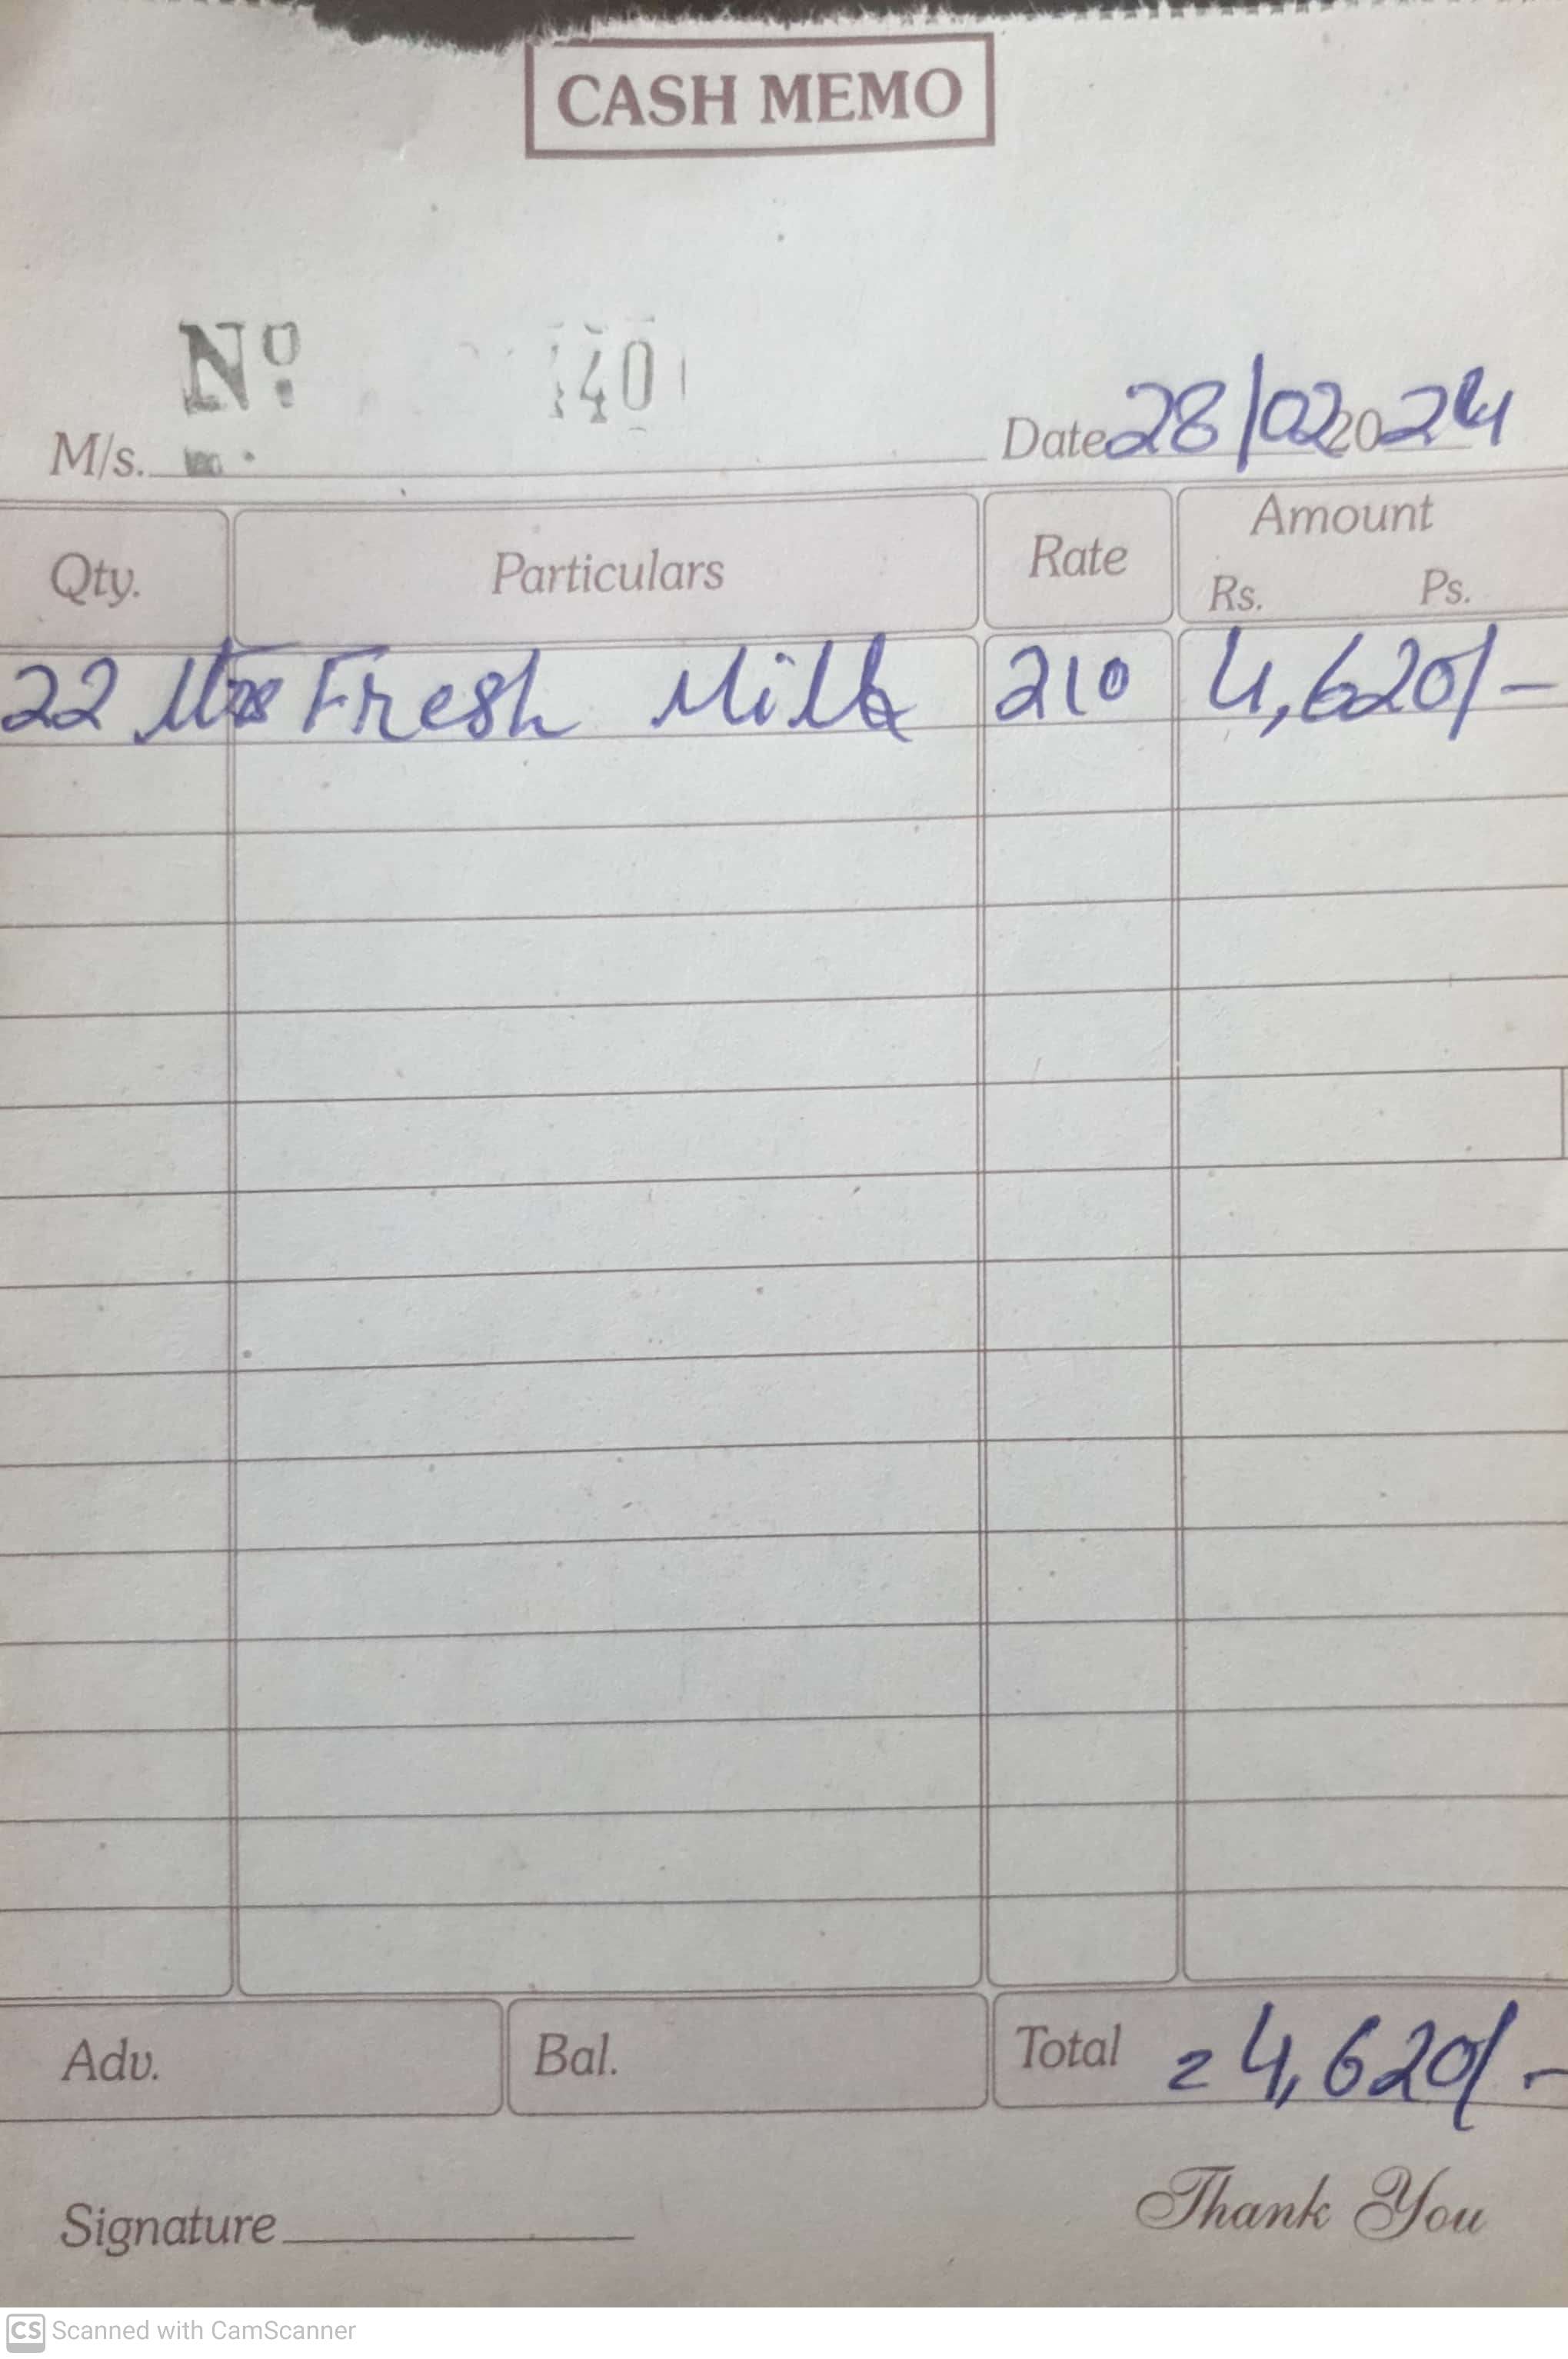 CASH MEMO
Nº 40
M/s. Date 28/02 2024
Qty. Particulars Rate Amount
Rs. Ps.
22 ltrs Fresh Milk 210 4,620/-
Adv. Bal. Total = 4,620/-
Signature Thank You
CS Scanned with CamScanner